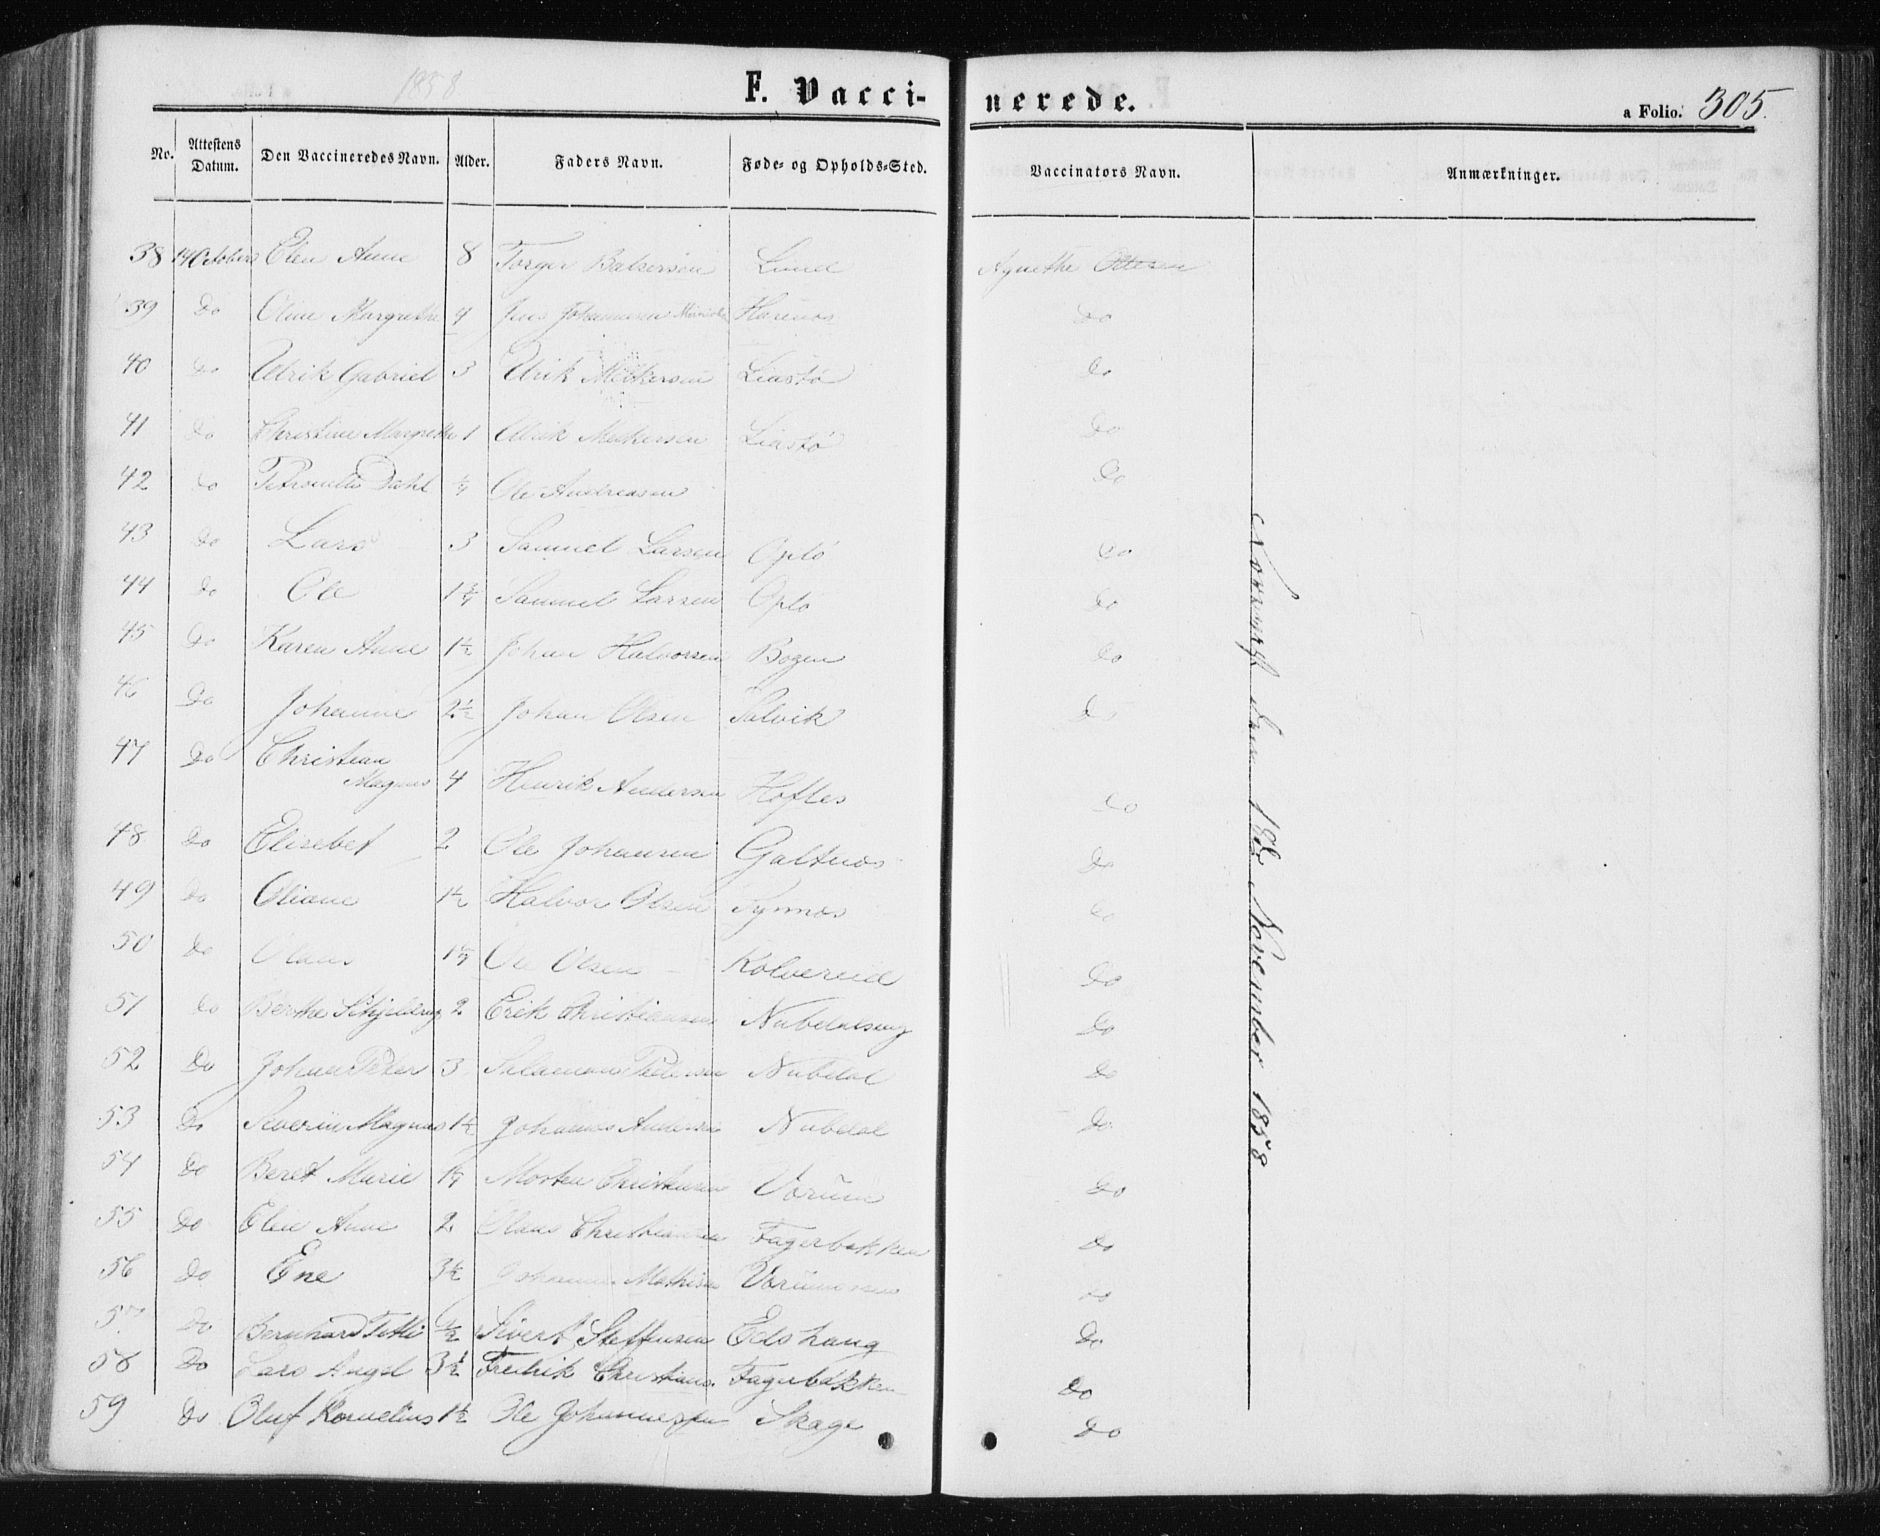 1858
F. Vacci-
nerede.
a Folio. 305.
No. Attestens Datum. Den Vaccineredes Navn. Alder. Faders Navn. Føde- og Opholds-Sted. Vaccinators Navn. Anmærkninger.
38 14 October Elen Anne 8 Torger Balsersen Lund Agnethe Ottesen
39 Do Oline Margrethe 4 Jens Johannesen Horsnæs Do
40 Do Ulrik Gabriel 3 Ulrik Liastø Do
41 Do Christine Margrethe 1 Ulrik Liastø Do
42 Do Dahl Ole Andreasen Do
43 Do Lars 3 Samuel Larsen Oplø Do
44 Do Ole Samuel Larsen Oplø Do
45 Do Karen Anne 1½ Johan Halvorsen Bogen Do
46 Do Johanne 2½ Johan Olsen Salvik Do
47 Do Christian
Magnus 4 Henrik Andersen Hofles Do
48 Do Elisebet 2 Ole Johansen Galtnæs Do
49 Do Oliane 1½ Halvor Olsen Do
50 Do Olaus Ole Olsen Kolvereid Do
51 Do Berthe 2 Erik Christiansen Do
52 Do Johan Peter 3 Salamon Pedersen Nubdal Do
53 Do Severin Magnus 1½ Johannes Andersen Nubdal Do
54 Do Beret Marie Morten Christensen Vorum Do
55 Do Elen Anne 2 Olaus Christiansen Fagerbakken Do
56 Do Ene 3½ Mathisen Do
57 Do Bernhard ½ Sivert Steffensen Edshaug Do
58 Do Lars Angel 3½ Fredrik Christians. Fagerbakken Do
59 Do Oluf Kornelius 1½ Ole Johannessen Skage Do
den 18de November 1858